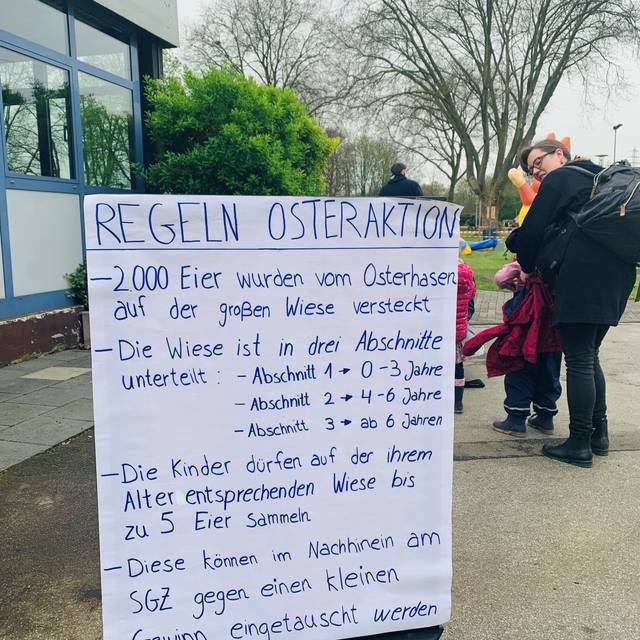 REGELN OSTERAKTION
- 2.000 Eier wurden vom Osterhasen
auf der großen Wiese versteckt
- Die Wiese ist in drei Abschnitte
unterteilt : - Abschnitt 1 → 0-3 Jahre
- Abschnitt 2 → 4-6 Jahre
- Abschnitt 3 → ab 6 Jahren
- Die Kinder dürfen auf der ihrem
Alter entsprechenden Wiese bis
zu 5 Eier sammeln
- Diese können im Nachhinein am
SGZ gegen einen kleinen
Gewinn eingetauscht werden